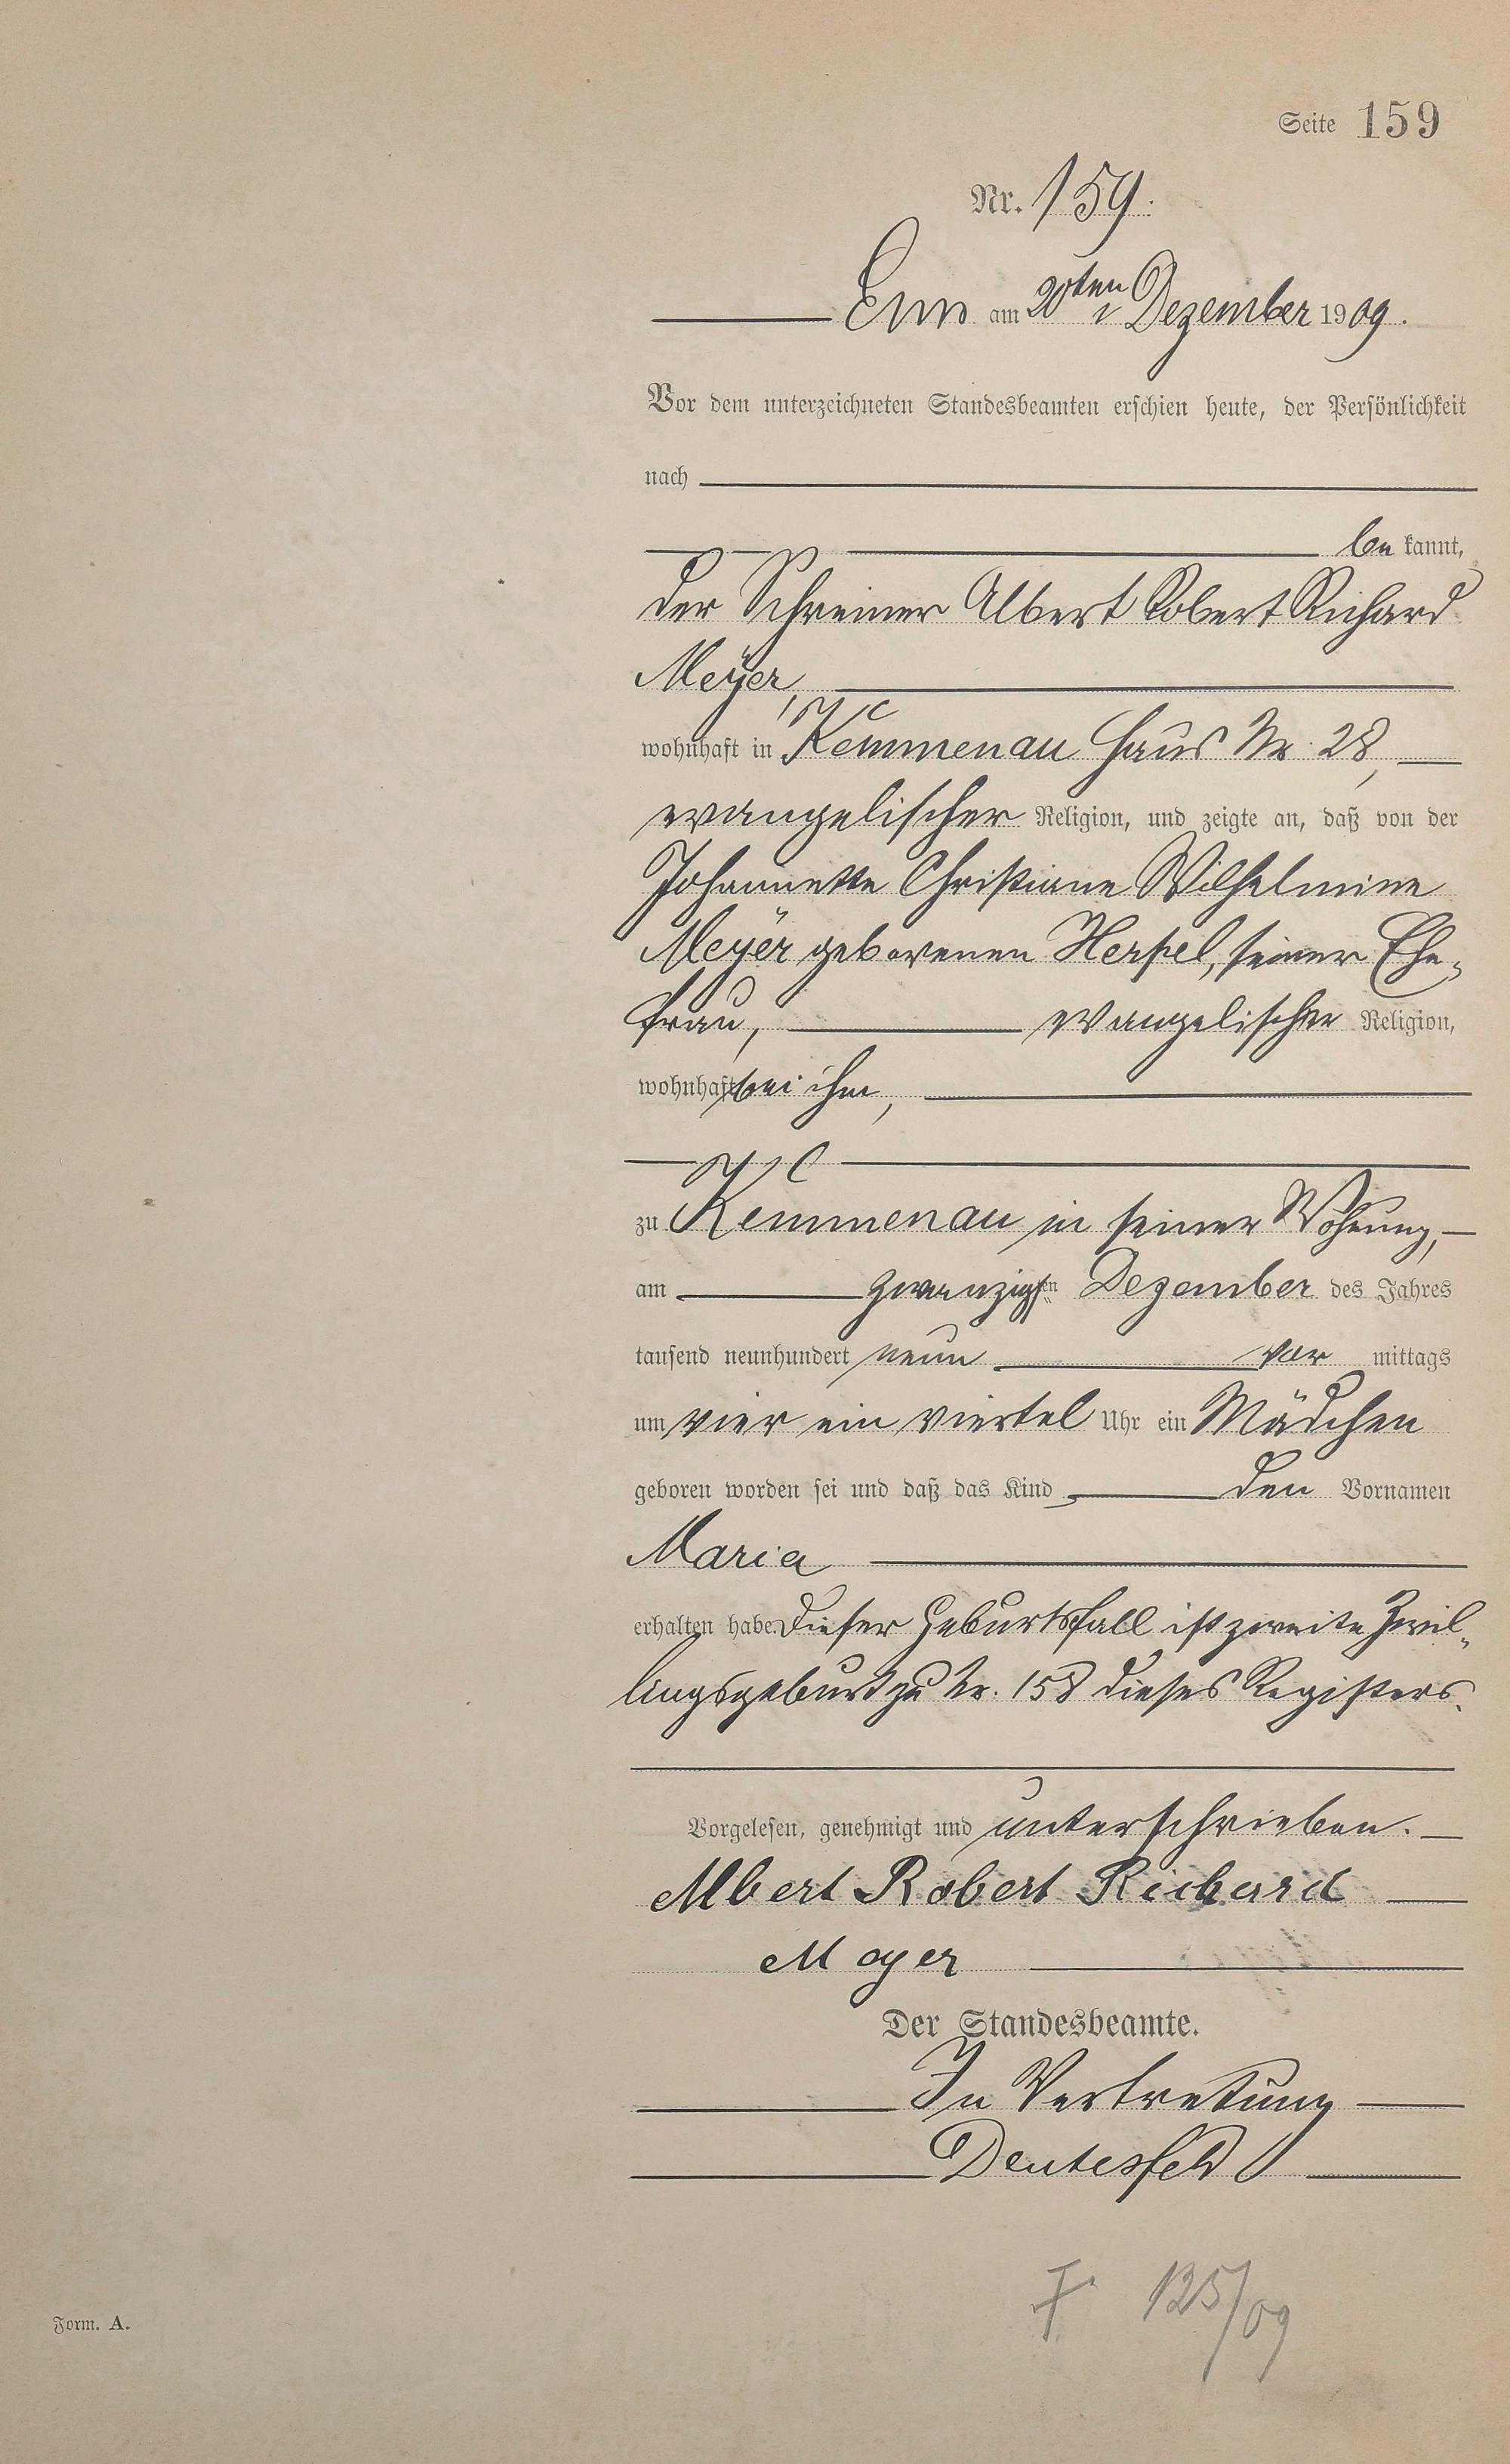 Seite 159
Nr. 159.
Ems am 20ten Dezember 1909.
Vor dem unterzeichneten Standesbeamten erschien heute, der Persönlichkeit
nach
be kannt,
der Schreiner Albert Robert Richard
Meÿer,
wohnhaft in Kemmenau Haus Nr. 28,
evangelischer Religion, und zeigte an, daß von der
Johannette Christiane Wilhelmine
Meÿer geborenen Herpel, seiner Ehe-
frau, evangelischer Religion,
wohnhaft bei ihm,
zu Kemmenau in seiner Wohnung,
am zwanzigsten Dezember des Jahres
tausend neunhundert neun vor mittags
um vier ein viertel Uhr ein Mädchen
geboren worden sei und daß das Kind den Vornamen
Maria
erhalten habe. Dieser Geburtsfall ist zweite Zwil-
lingsgeburt zu Nr. 158 dieses Registers.
Vorgelesen, genehmigt und unterschrieben.
Albert Robert Richard
Meyer
Der Standesbeamte.
In Vertretung
Deutesfeld
† 125/09
Form. A.